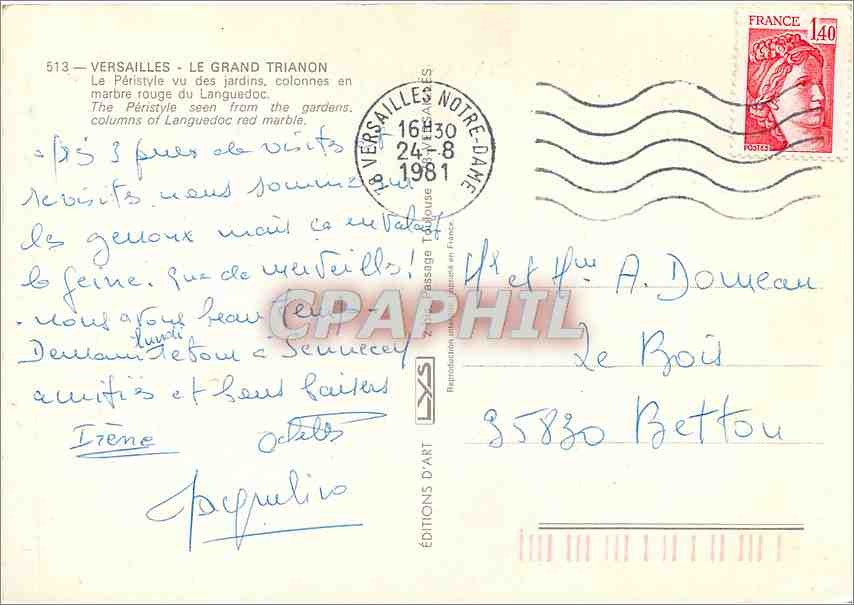 513 — VERSAILLES - LE GRAND TRIANON
Le Péristyle vu des jardins, colonnes en
marbre rouge du Languedoc.
The Péristyle seen from the gardens.
columns of Languedoc red marble.
FRANCE 1,40
POSTES
78 VERSAILLES NOTRE-DAME
16H30
24-8
1981
3 jours de visites et
revisites nous sommes sur
les genoux mais ça en valait
la peine. Que de merveilles!
nous avons beau temps-
lundi
Demain retour à Sennecey
amitiés et bons baisers
Irène Odette
Jacqueline
Mr et Mme A. Domeau
Le Bois
35830 Betton
ÉDITIONS D'ART LYS
Passage Toulouse 78-VERSAILLES
Reproduction interdite. Imprimé en France.
CPAPHIL